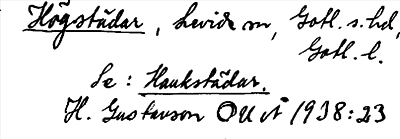 Högstädar, Levide sn, Gotl. s. hd,
Gotl. l.
Se: Haukstädar.
H. Gustavson OU 1938:23